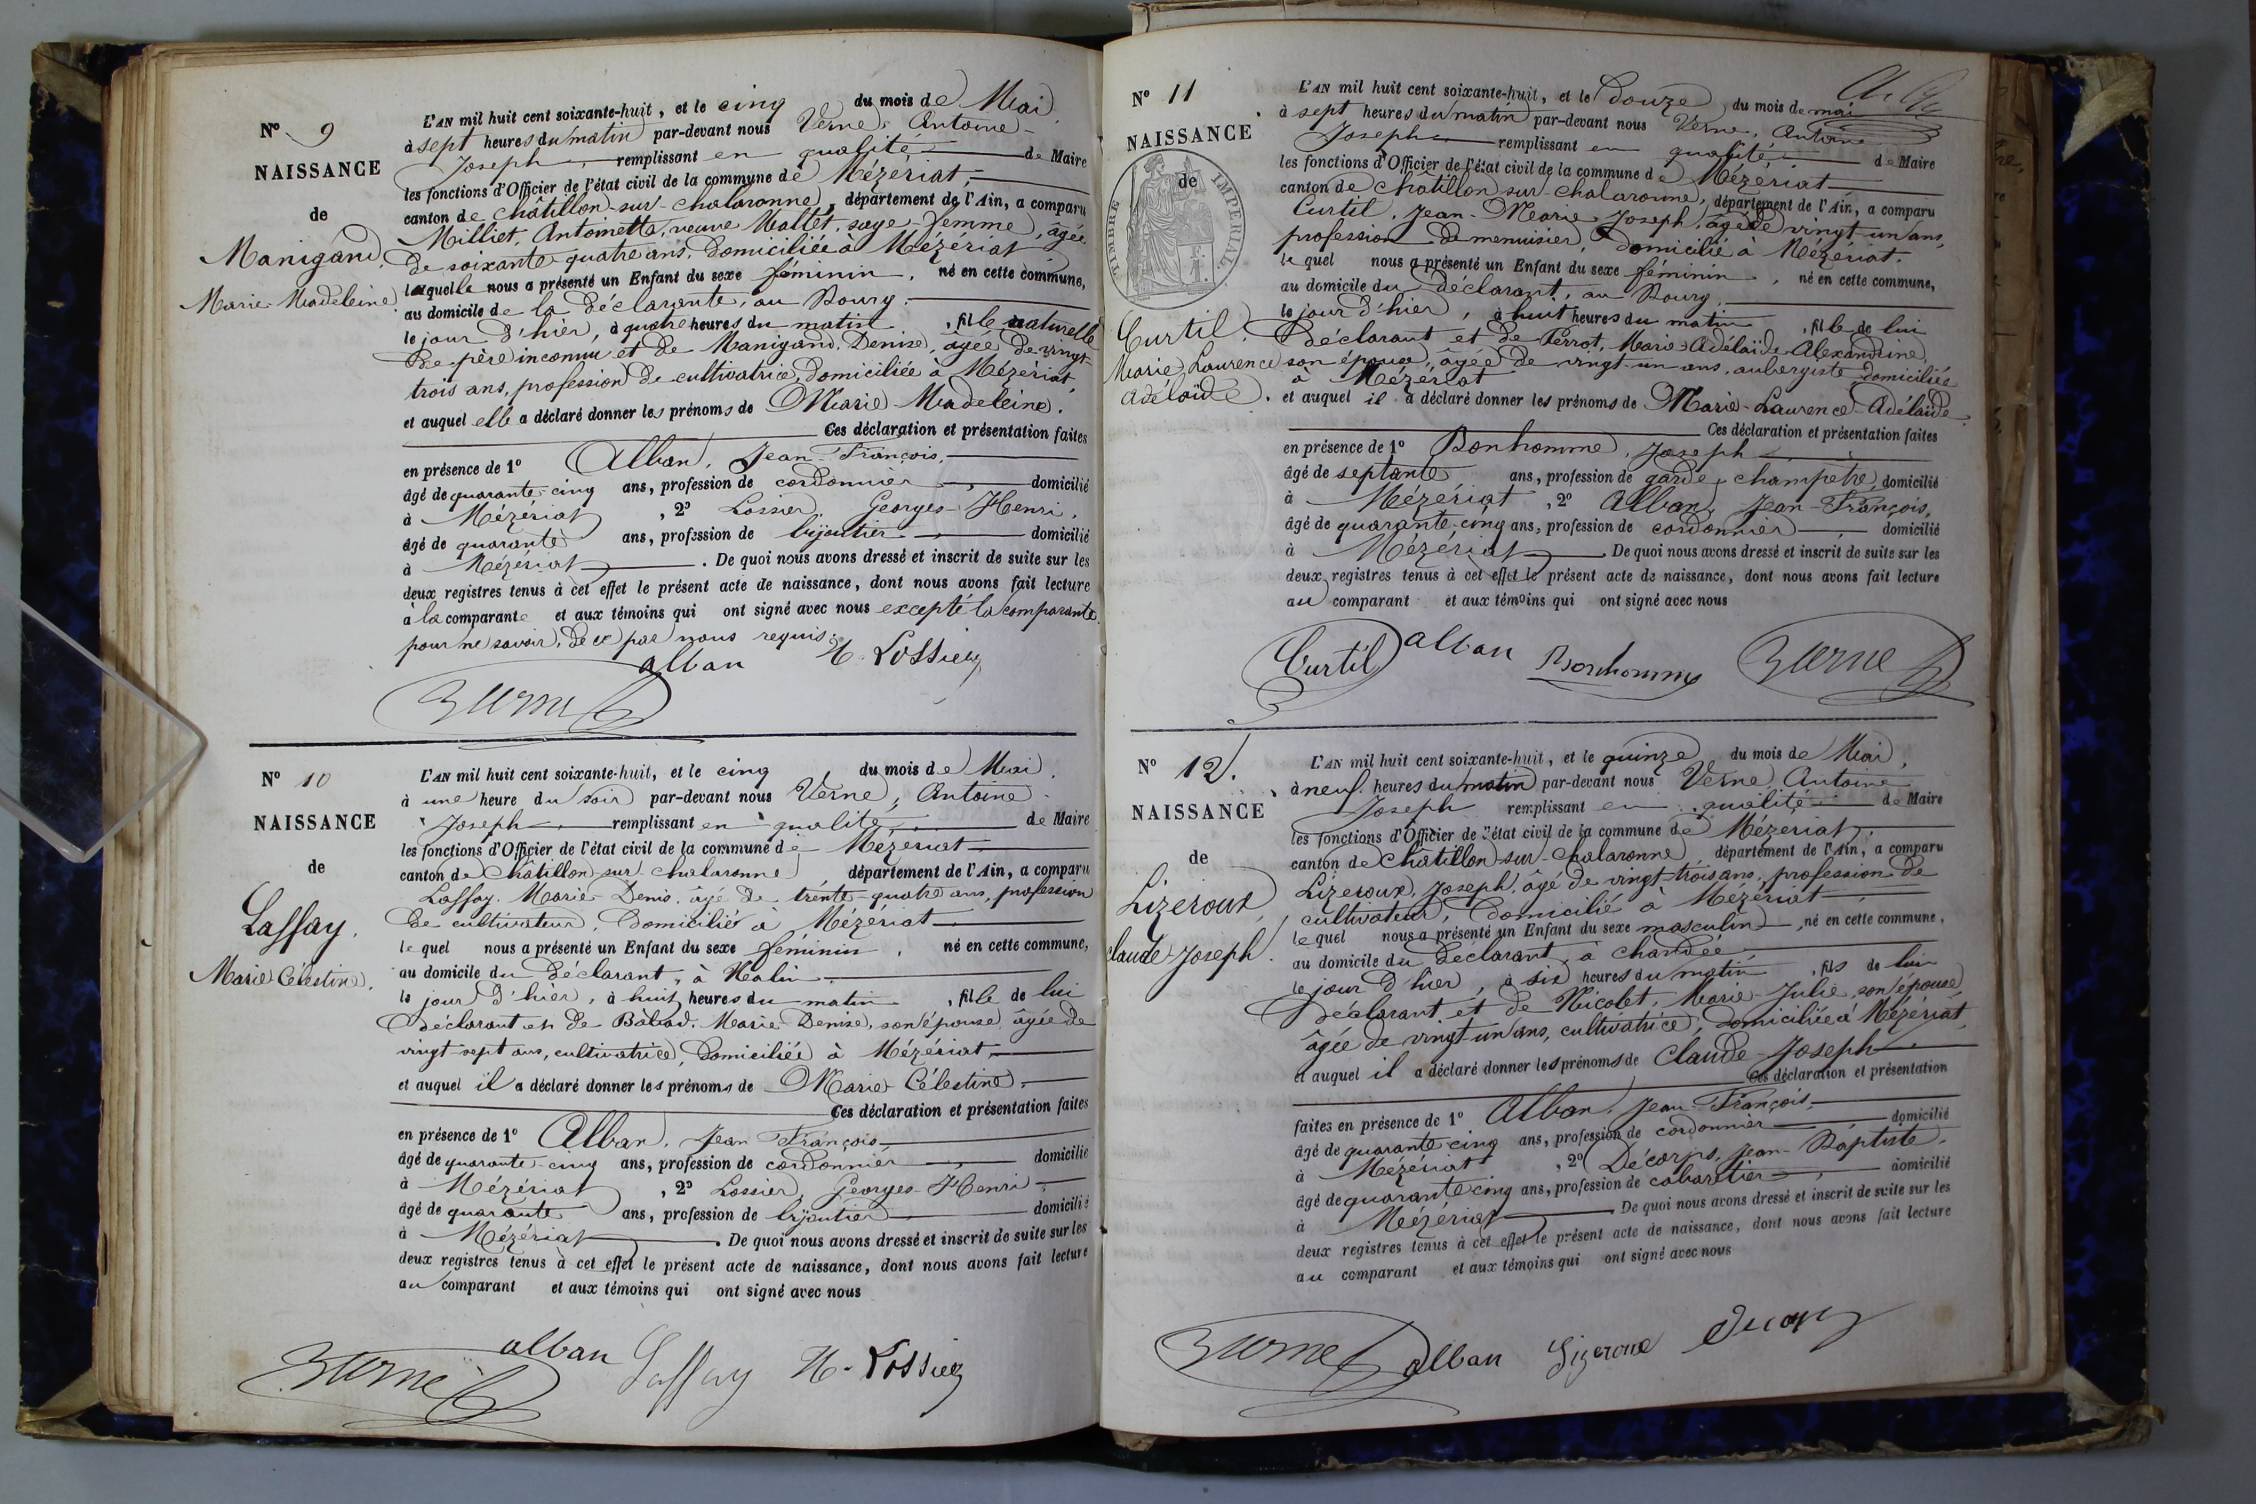 N° 9
NAISSANCE
de
Manigand,
Marie Madeleine
L'AN mil huit cent soixante-huit, et le cinq du mois de Mai,
à sept heures du matin par-devant nous Verne, Antoine-
Joseph remplissant en qualité de Maire
les fonctions d'Officier de l'état civil de la commune de Mézériat,
canton de Châtillon-sur-Chalaronne, département de l'Ain, a comparu
Milliet, Antoinette, veuve Mallet, sage-femme, âgée
de soixante quatre ans, domiciliée à Mézériat
laquelle nous a présenté un Enfant du sexe féminin, né en cette commune,
au domicile de la déclarante, au Bourg.
le jour d'hier, à quatre heures du matin, fille naturelle
de père inconnu et de Manigand, Denise, âgée de vingt-
trois ans, profession de cultivatrice, domiciliée à Mézériat,
et auquel elle a déclaré donner les prénoms de Marie-Madeleine.
Ces déclaration et présentation faites
en présence de 1° Alban, Jean-François,
âgé de quarante-cinq ans, profession de cordonnier domicilié
à Mézériat, 2° Lossier, Georges-Henri,
âgé de quarante ans, profession de bijoutier domicilié
à Mézériat. De quoi nous avons dressé et inscrit de suite sur les
deux registres tenus à cet effet le présent acte de naissance, dont nous avons fait lecture
à la comparante et aux témoins qui ont signé avec nous excepté la comparante
pour ne savoir, de ce par nous requis.
alban H. Lossier
Verne
N° 10
NAISSANCE
de
Laffay,
Marie Célestine.
L'AN mil huit cent soixante-huit, et le cinq du mois de Mai,
à une heure du soir par-devant nous Verne, Antoine
Joseph remplissant en qualité de Maire
les fonctions d'Officier de l'état civil de la commune de Mézériat
canton de Châtillon-sur-Chalaronne département de l'Ain, a comparu
Laffay, Marie Denis, âgé de trente-quatre ans, profession
de cultivateur, domicilié à Mézériat
lequel nous a présenté un Enfant du sexe féminin, né en cette commune,
au domicile du déclarant, à
le jour d'hier, à huit heures du matin, fille de lui
déclarant et de Marie Denise, son épouse, âgée de
vingt-sept ans, cultivatrice, domiciliée à Mézériat,
et auquel il a déclaré donner les prénoms de Marie Célestine,
Ces déclaration et présentation faites
en présence de 1° Alban, Jean François
âgé de quarante-cinq ans, profession de cordonnier domicilié
à Mézériat, 2° Lossier, Georges-Henri,
âgé de quarante ans, profession de bijoutier domicilié
à Mézériat. De quoi nous avons dressé et inscrit de suite sur les
deux registres tenus à cet effet le présent acte de naissance, dont nous avons fait lecture
au comparant et aux témoins qui ont signé avec nous
Verne alban Laffay H. Lossier
N° 11
NAISSANCE
de
TIMBRE IMPERIAL
Curtil,
Marie, Laurence
Adélaïde.
L'AN mil huit cent soixante-huit, et le douze du mois de mai
à sept heures du matin par-devant nous Verne, Antoine
Joseph remplissant en qualité de Maire
les fonctions d'Officier de l'état civil de la commune de Mézériat
canton de Châtillon-sur-Chalaronne, département de l'Ain, a comparu
Curtil, Jean-Marie-Joseph, âgé de vingt-un ans,
profession de menuisier, domicilié à Mézériat.
lequel nous a présenté un Enfant du sexe féminin, né en cette commune,
au domicile du déclarant, au Bourg.
le jour d'hier, à huit heures du matin, fille de lui
déclarant et de Perrot, Marie-Adélaïde-Alexandrine,
son épouse, âgée de vingt-un ans, aubergiste domiciliée
à Mézériat
et auquel il a déclaré donner les prénoms de Marie-Laurence-Adélaïde.
Ces déclaration et présentation faites
en présence de 1° Bonhomme, Joseph
âgé de septante ans, profession de garde-champêtre, domicilié
à Mézériat, 2° Alban, Jean-François,
âgé de quarante-cinq ans, profession de cordonnier domicilié
à Mézériat. De quoi nous avons dressé et inscrit de suite sur les
deux registres tenus à cet effet le présent acte de naissance, dont nous avons fait lecture
au comparant et aux témoins qui ont signé avec nous
Curtil alban Bonhomme Verne
N° 12.
NAISSANCE
de
Lizeroux,
Claude Joseph.
L'AN mil huit cent soixante-huit, et le quinze du mois de Mai,
à neuf heures du matin par-devant nous Verne, Antoine
Joseph remplissant en qualité de Maire
les fonctions d'Officier de l'état civil de la commune de Mézériat,
canton de Châtillon-sur-Chalaronne département de l'Ain, a comparu
Lizeroux, Joseph, âgé de vingt-trois ans, profession de
cultivateur, domicilié à Mézériat
lequel nous a présenté un Enfant du sexe masculin, né en cette commune,
au domicile du déclarant, à
le jour d'hier, à six heures du matin, fils de lui
déclarant et de Nicolet, Marie-Julie, son épouse,
âgée de vingt-un ans, cultivatrice, domiciliée à Mézériat,
et auquel il a déclaré donner les prénoms de Claude-Joseph
Ces déclaration et présentation
faites en présence de 1° Alban, Jean-François,
âgé de quarante-cinq ans, profession de cordonnier domicilié
à Mézériat, 2° Décorps, Jean-Baptiste,
âgé de quarante cinq ans, profession de cabaretier domicilié
à Mézériat De quoi nous avons dressé et inscrit de suite sur les
deux registres tenus à cet effet le présent acte de naissance, dont nous avons fait lecture
au comparant et aux témoins qui ont signé avec nous
Verne alban Lizeroux